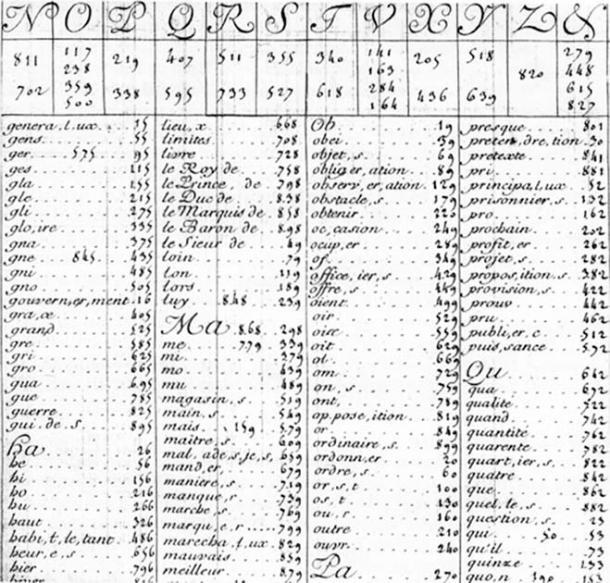 N O P Q R S T V X Y Z &
117 141 279
811 219 407 511 355 340 205 518
238 163 448
820
359 284 615
702 338 595 733 527 618 436 639
500 164 827
genera,l,ux 15
gens 55
ger 575 95
ges 115
gla 155
gle 215
gli 275
glo,ire 335
gna 375
gne 845 435
gni 485
gno 505
gouvern,er,ment 16
gra,ce 405
grand 525
gre 585
gri 625
gro 665
gua 695
gue 785
guerre 825
gui de s 895
ha 26
he 56
hi 156
ho 216
hu 266
haut 326
habit,t,le,tant 486
heur,e,s 656
hier 796
lieu,x 668
limites 708
livre 728
le Roy de 758
le Prince, de 798
le Duc de 838
le Marquis de 858
le Baron de 898
le Sieur de 49
loin 79
lon 119
lors 189
luy 848 239
Ma 868 298
me 779 339
mi 379
mo 439
mu 489
magasin,s 519
main,s 549
mais 159 579
maitre,s 609
mal,ade,s,je,s 659
mand,er 679
maniere,s 719
manque,r 739
marche,s 769
marqu,e,r 799
marecha,l,ux 829
mauvais 859
meilleur 879
Ob 19
obei 39
objet,s 69
oblig,er,ation 89
observ,er,ation 129
obstacle,s 179
obtenir 226
oc,casion 249
ocup,er 289
of 349
office,ier,s 429
offre,s 449
oient 499
oir 529
oise 559
oit 629
ol 669
om 729
on,s 759
ont 789
op,pose,ition 819
or 849
ordinaire,s 899
ordonn,er 20
ordre,s 60
or,s,t 100
os,t 130
ou,s 160
outre 210
ouvr 240
Pa 270
presque 801
preten,dre,tion 30
pretexte 841
pri 881
principa,l,ux 52
prisonnier,s 132
pro 162
prochain 202
profit,er 262
projet,s 282
propos,ition,s 382
provision,s 422
prouv 442
pru 462
publi,er,c 512
puis,sance 572
Qu 642
qua 672
qualité 522
quand 742
quantité 762
quarente 782
quart,ier,s 822
quatre 842
que 862
quel,le,s 882
question,s 23
qui 50 53
qu'il 73
quinze 133